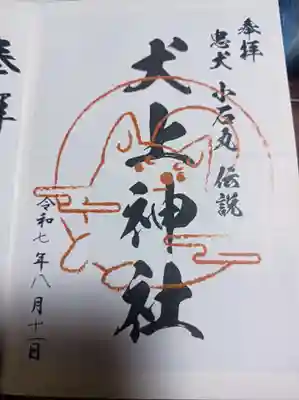 奉拝
忠犬 小石丸 伝説
犬上神社
令和七年八月十一日
奉拝